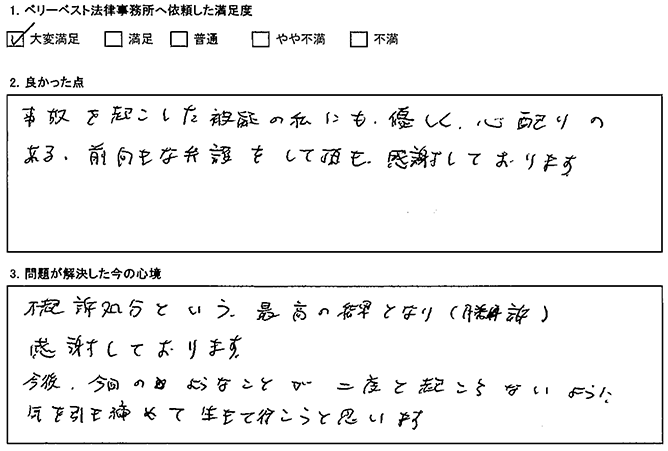 1. ベリーベスト法律事務所へ依頼した満足度
大変満足 満足 普通 やや不満 不満
2. 良かった点
事故を起こした 私にも、優しく、心配りの
ある、前向きな弁護をして頂き、感謝しております
3. 問題が解決した今の心境
不起訴処分という、最高の結果となり(勝訴)
感謝しております
今後、今回の ようなことが二度と起こらないように
気を引き締めて生きて行こうと思います